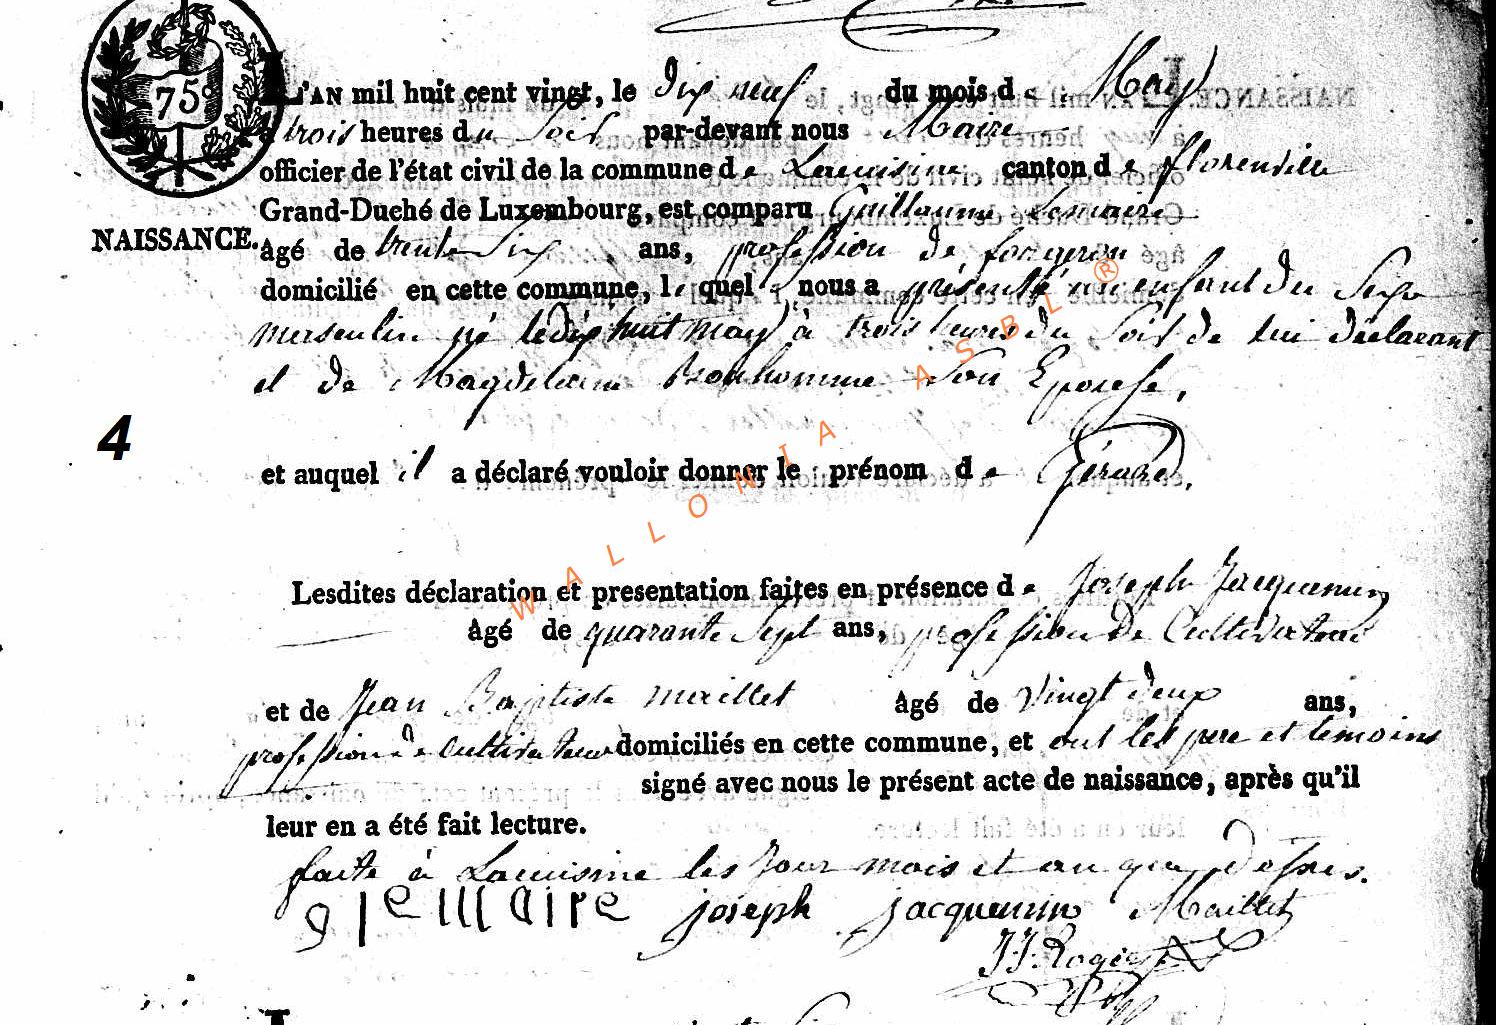 75c
L'AN mil huit cent vingt, le dix neuf du mois de May
a trois heures du Soir par-devant nous Maire
officier de l'état civil de la commune de Lacuisine canton de florenville
Grand-Duché de Luxembourg, est comparu Guillaume Lemaire
NAISSANCE.
Agé de trente Six ans, profession de forgeron
domicilié en cette commune, lequel nous a présenté un enfant du Sexe
masculin né le dix huit may à trois heures du Soir de lui déclarant
et de Magdelaine Bonhomme Son Epouse,
4
et auquel il a déclaré vouloir donner le prénom de Gérard,
Lesdites déclaration et presentation faites en présence de Joseph Jacquemin
Agé de quarante Sept ans, profession de Cultivateur
et de Jean Baptiste maillet Agé de vingt deux ans,
profession de Cultivateur domiciliés en cette commune, et ont les pere et temoins
signé avec nous le présent acte de naissance, après qu'il
leur en a été fait lecture.
faite à Lacuisine les jour mois et an que dessus.
g lemaire joseph jacquemin Maillet
J.J. Rogier
WALLONIA ASBL ®